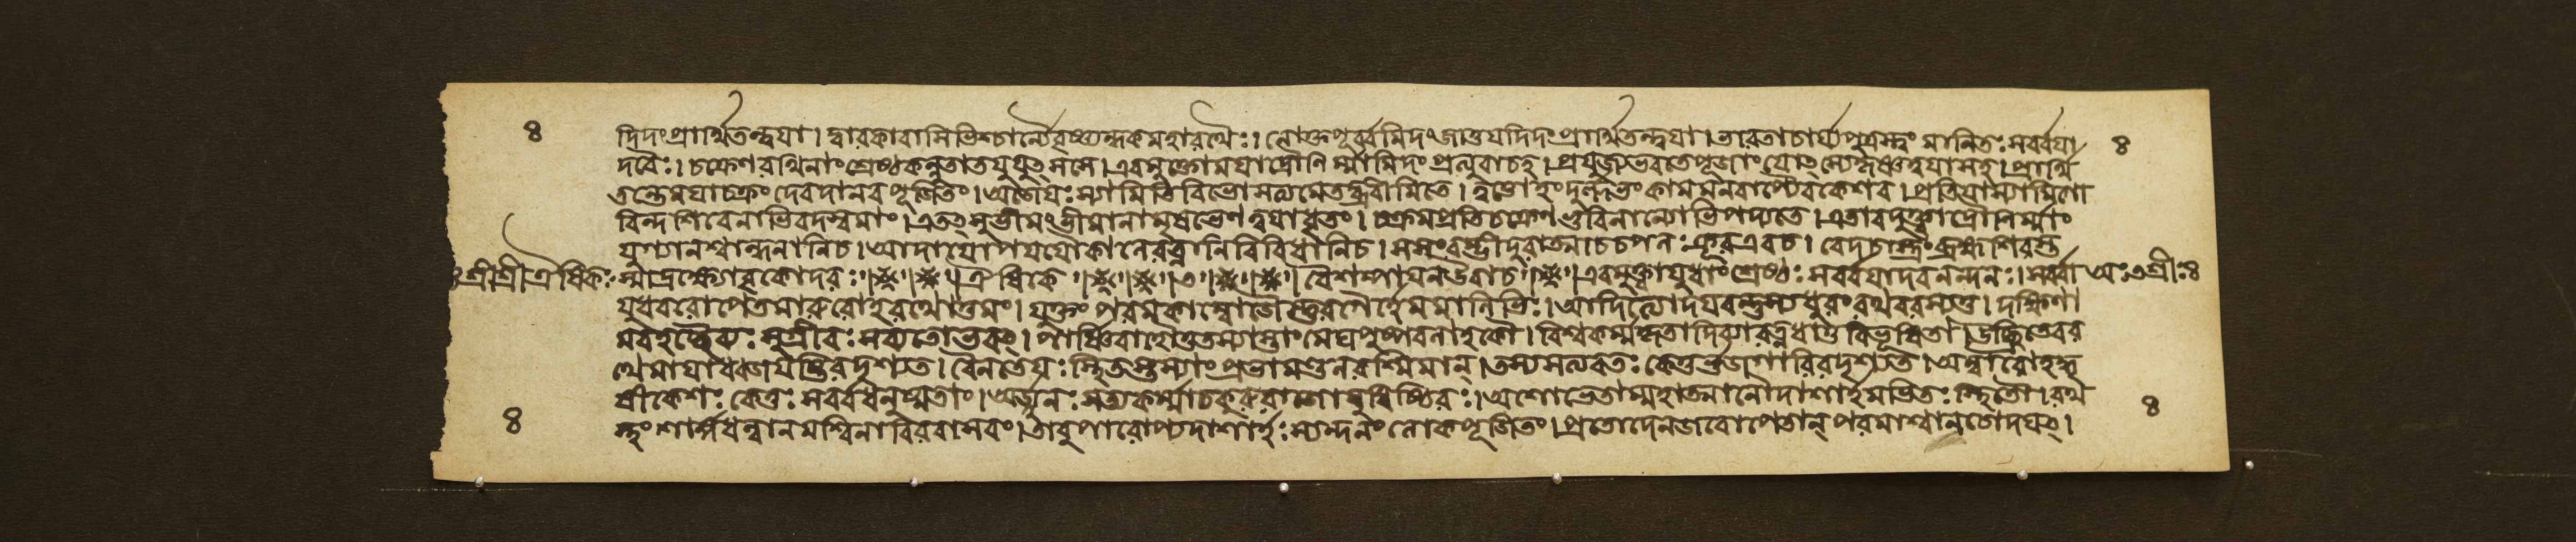 ৪ দিদংপ্রার্থিতন্ত্বয়া। দ্বারকাবাসিভিশ্চান্যৈর্বৃষ্ণ্যন্ধকমহারথৈঃ। নোক্তপূর্ব্বমিদংজাতুযদিদংপ্রার্থিতন্ত্বয়া। ভারতাচার্য্যপুত্রস্ত্বং মানিতঃ সর্ব্বযা ৪
দবৈঃ। চক্রেণ রথিনাংশ্রেষ্ঠ কন্নুতাতযুযুৎসসে। এবমুক্তোময়াদ্রৌণি র্ম্মামিদং প্রত্যুবাচহ। প্রযুজ্যভবতেপূজাং যোৎস্যেকৃষ্ণত্বয়াসহ। প্রার্থি
তন্তেময়াচক্রং দেবদানবপূজিতং। অজেয়ঃ স্যামিতিবিভোসত্যমেতদ্ব্রবীমিতে। ত্বত্তোহংদুর্ল্লভংকামমনবাপ্যৈবকেশব। প্রতিযাস্যামিগো
বিন্দশিবেনাভিবদস্বমাং। এতৎসুভীমংভীমানামৃষভেণত্বয়াধৃতং। চক্রমপ্রতিচক্রেণভুবিনান্যোভিপদ্যতে। এতাবদুক্ত্বাদ্রৌণির্ম্মাং
যুগ্যানশ্বান্ধনানিচ। আদায়োপযযৌকালেরত্নানিবিবিধানিচ। সসংরম্ভীদুরাত্মাচচপলঃক্রূরএবচ। বেদচাস্ত্রংব্রহ্মশিরস্ত
শ্রীশ্রীঐষিকঃ স্মাদ্রক্ষ্যোবৃকোদরঃ। ঐষিকে। বৈশম্পায়নউবাচ। এবমুক্ত্বাযুধাংশ্রেষ্ঠঃ সর্ব্বযাদবনন্দনঃ। সর্ব্বা
যুধবরোপেতমারুরোহরথোত্তমং। যুক্তংপরমকাম্বোজৈস্তুরগৈর্হেমমালিভিঃ। আদিত্যোদয়বর্ণস্যধুরংরথবরস্যতু। দক্ষিণা
মবহচ্ছৈব্যঃ সুগ্রীবঃ সব্যতোভবৎ। পার্ষ্ণিবাহৌতুতস্যাস্তাং মেঘপুষ্পবলাহকৌ। বিশ্বকর্ম্মকৃতাদিব্যারত্নধাতুবিভূষিতা। উচ্ছ্রিতেবর
থেমায়াধ্বজযষ্টিরদৃশ্যত। বৈনতেয়ঃ স্থিতস্তস্যাং প্রভামণ্ডলরশ্মিমান্। তস্যসত্যবতঃ কেতুর্ভুজগারিরদৃশ্যত। অন্বারোহদ্ধৃ
ষীকেশঃ কেতুঃ সর্ব্বধনুষ্মতাং। অর্জ্জুনঃ সত্যকর্ম্মাচকুরুরাজোযুধিষ্ঠিরঃ। অশোভেতাম্মহাত্মানৌদাশার্হমভিতঃ স্থিতৌ। রথ
৪ স্থংশার্ঙ্গধন্বানমশ্বিনাবিববাসবং। তাবুপারোপ্যদাশার্হঃ স্যন্দনং লোকপূজিতং। প্রতোদেনজবোপেতান্ পরমাশ্বানচোদয়ৎ। ৪